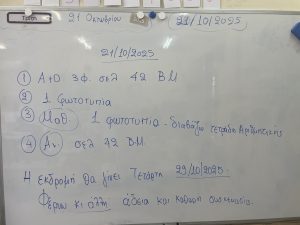 Τρίτη 21 Οκτωβρίου 21/10/2025
21/10/2025
① Α+Ο 3φ. σελ 42 ΒΜ
② 1 φωτοτυπία
③ Μαθ 1 φωτοτυπία - διαβάζω τετράδιο Αριθμητικής
④ σελ 42 ΒΜ.
Η εκδρομή θα γίνει Τετάρτη 29/10/2025.
Φέρνω κι άλλη άδεια και καθαρή